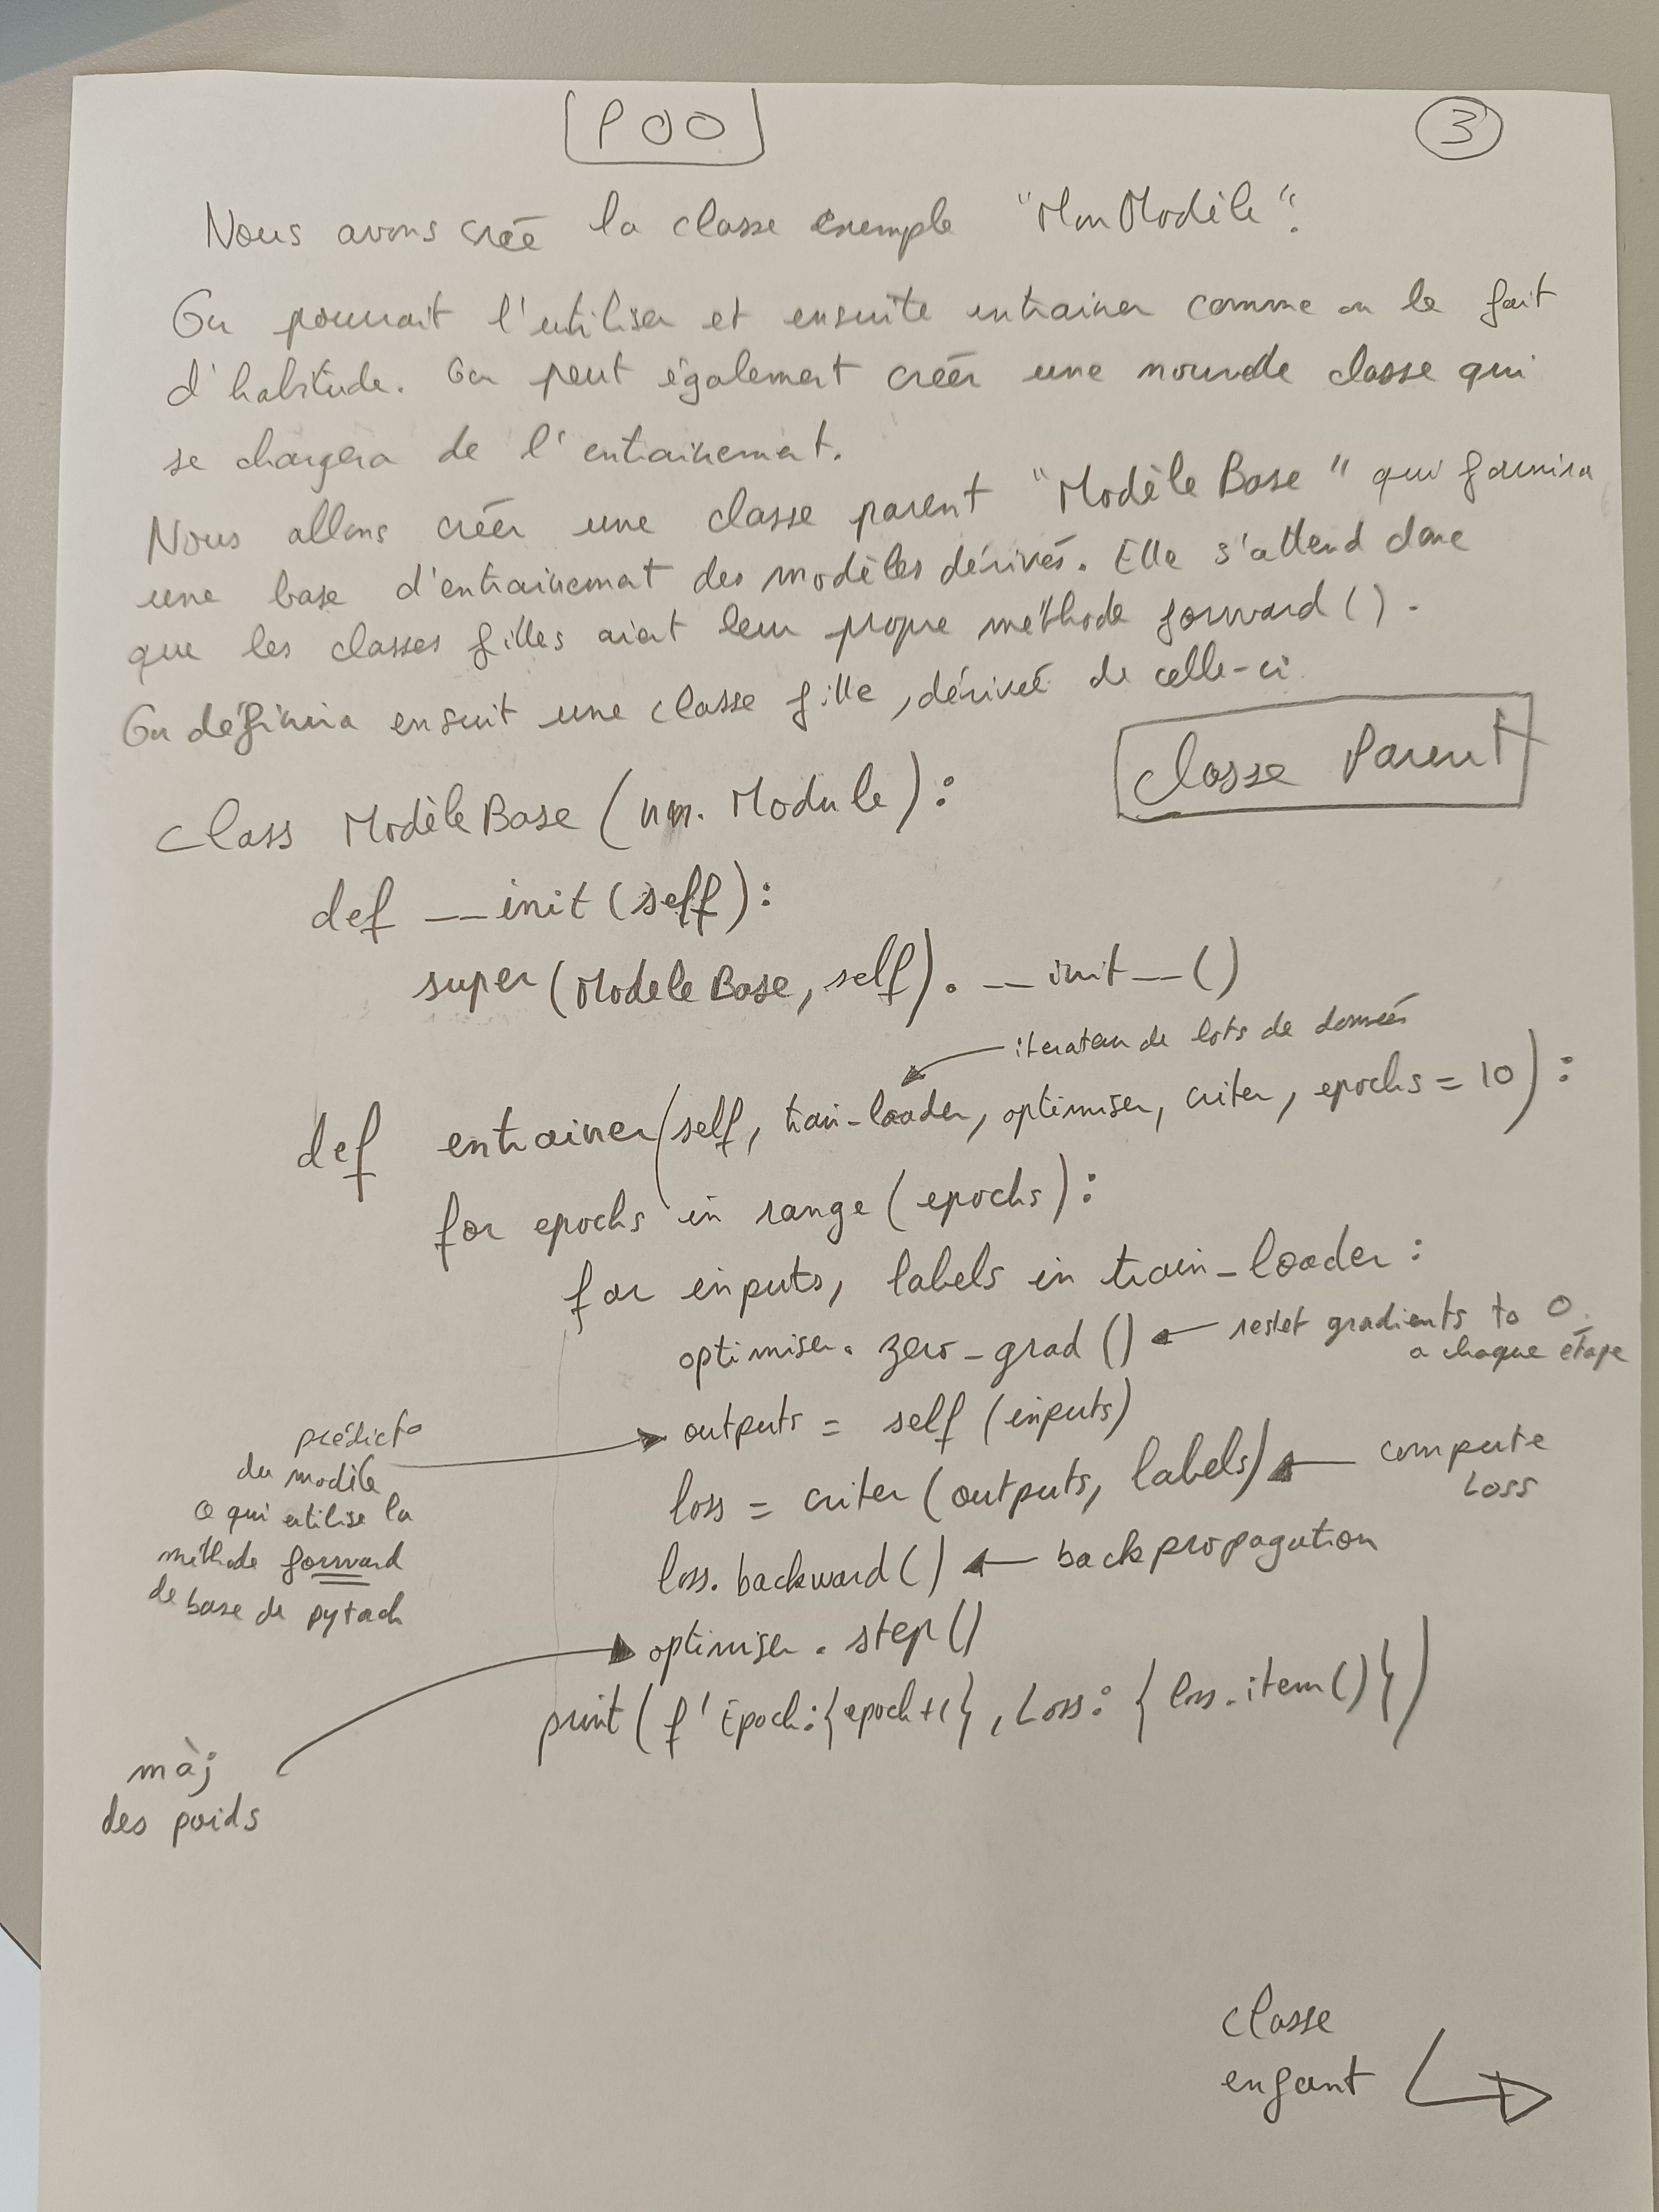 POO
3
Nous avons créé la classe exemple "MonModèle".
On pourrait l'utiliser et ensuite entrainer comme on le fait
d'habitude. On peut également créer une nouvelle classe qui
se chargera de l'entrainement.
Nous allons créer une classe parent "Modèle Base" qui fournira
une base d'entrainement des modèles dérivés. Elle s'attend donc
que les classes filles aient leur propre méthode forward().
On définira ensuit une classe fille, dérivée de celle-ci.
Classe Parent
class ModèleBase (nn.Module):
def __init(self):
super(ModeleBase, self).__init__()
iterateur de lots de données
def entrainer(self, train_loader, optimiser, criter, epochs = 10):
for epochs in range (epochs):
for inputs, labels in train_loader:
optimiser.zero_grad() ← reset gradients to 0
a chaque étape
prédict°
du modèle
outputs = self (inputs)
loss = criter (outputs, labels) ← compute
Loss
ce qui utilise la
méthode forward
de base de pytorch
loss.backward() ← backpropagation
optimiser.step()
print(f'Epoch:{epoch+1}, Loss: {loss.item()})
màj
des poids
classe
enfant